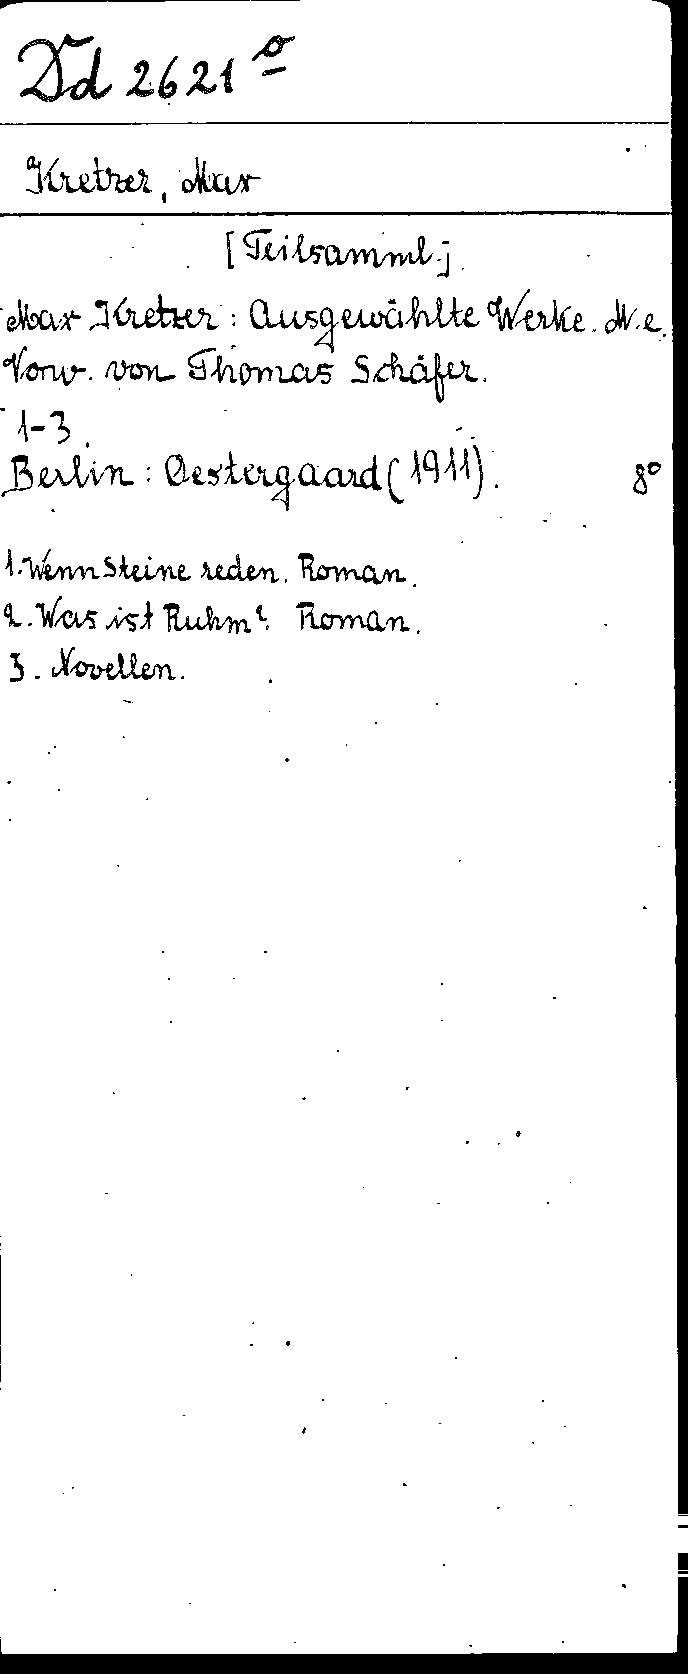 Dd 2621 º
Kretzer, Max
[Teilsamml.]
Max Kretzer: Ausgewählte Werke. M. e.
Vorw. von Thomas Schäfer.
1-3.
Berlin: Oestergaard (1911). 8º
1. Wenn Steine reden. Roman.
2. Was ist Ruhm? Roman.
3. Novellen.